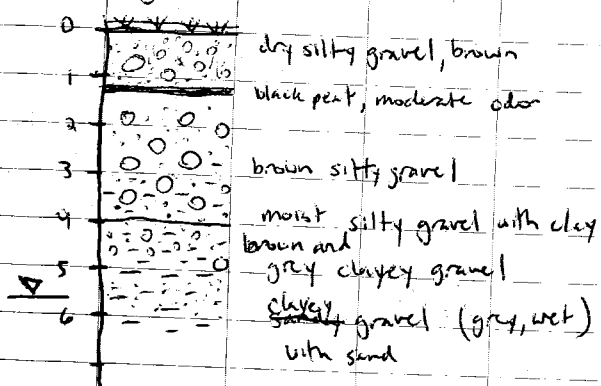 0
dry silty gravel, brown
1
black peat, moderate odor
2
3
brown silty gravel
4
moist silty gravel with clay
brown and
grey clayey gravel
5
clayey
6
sandy gravel (grey, wet)
with sand